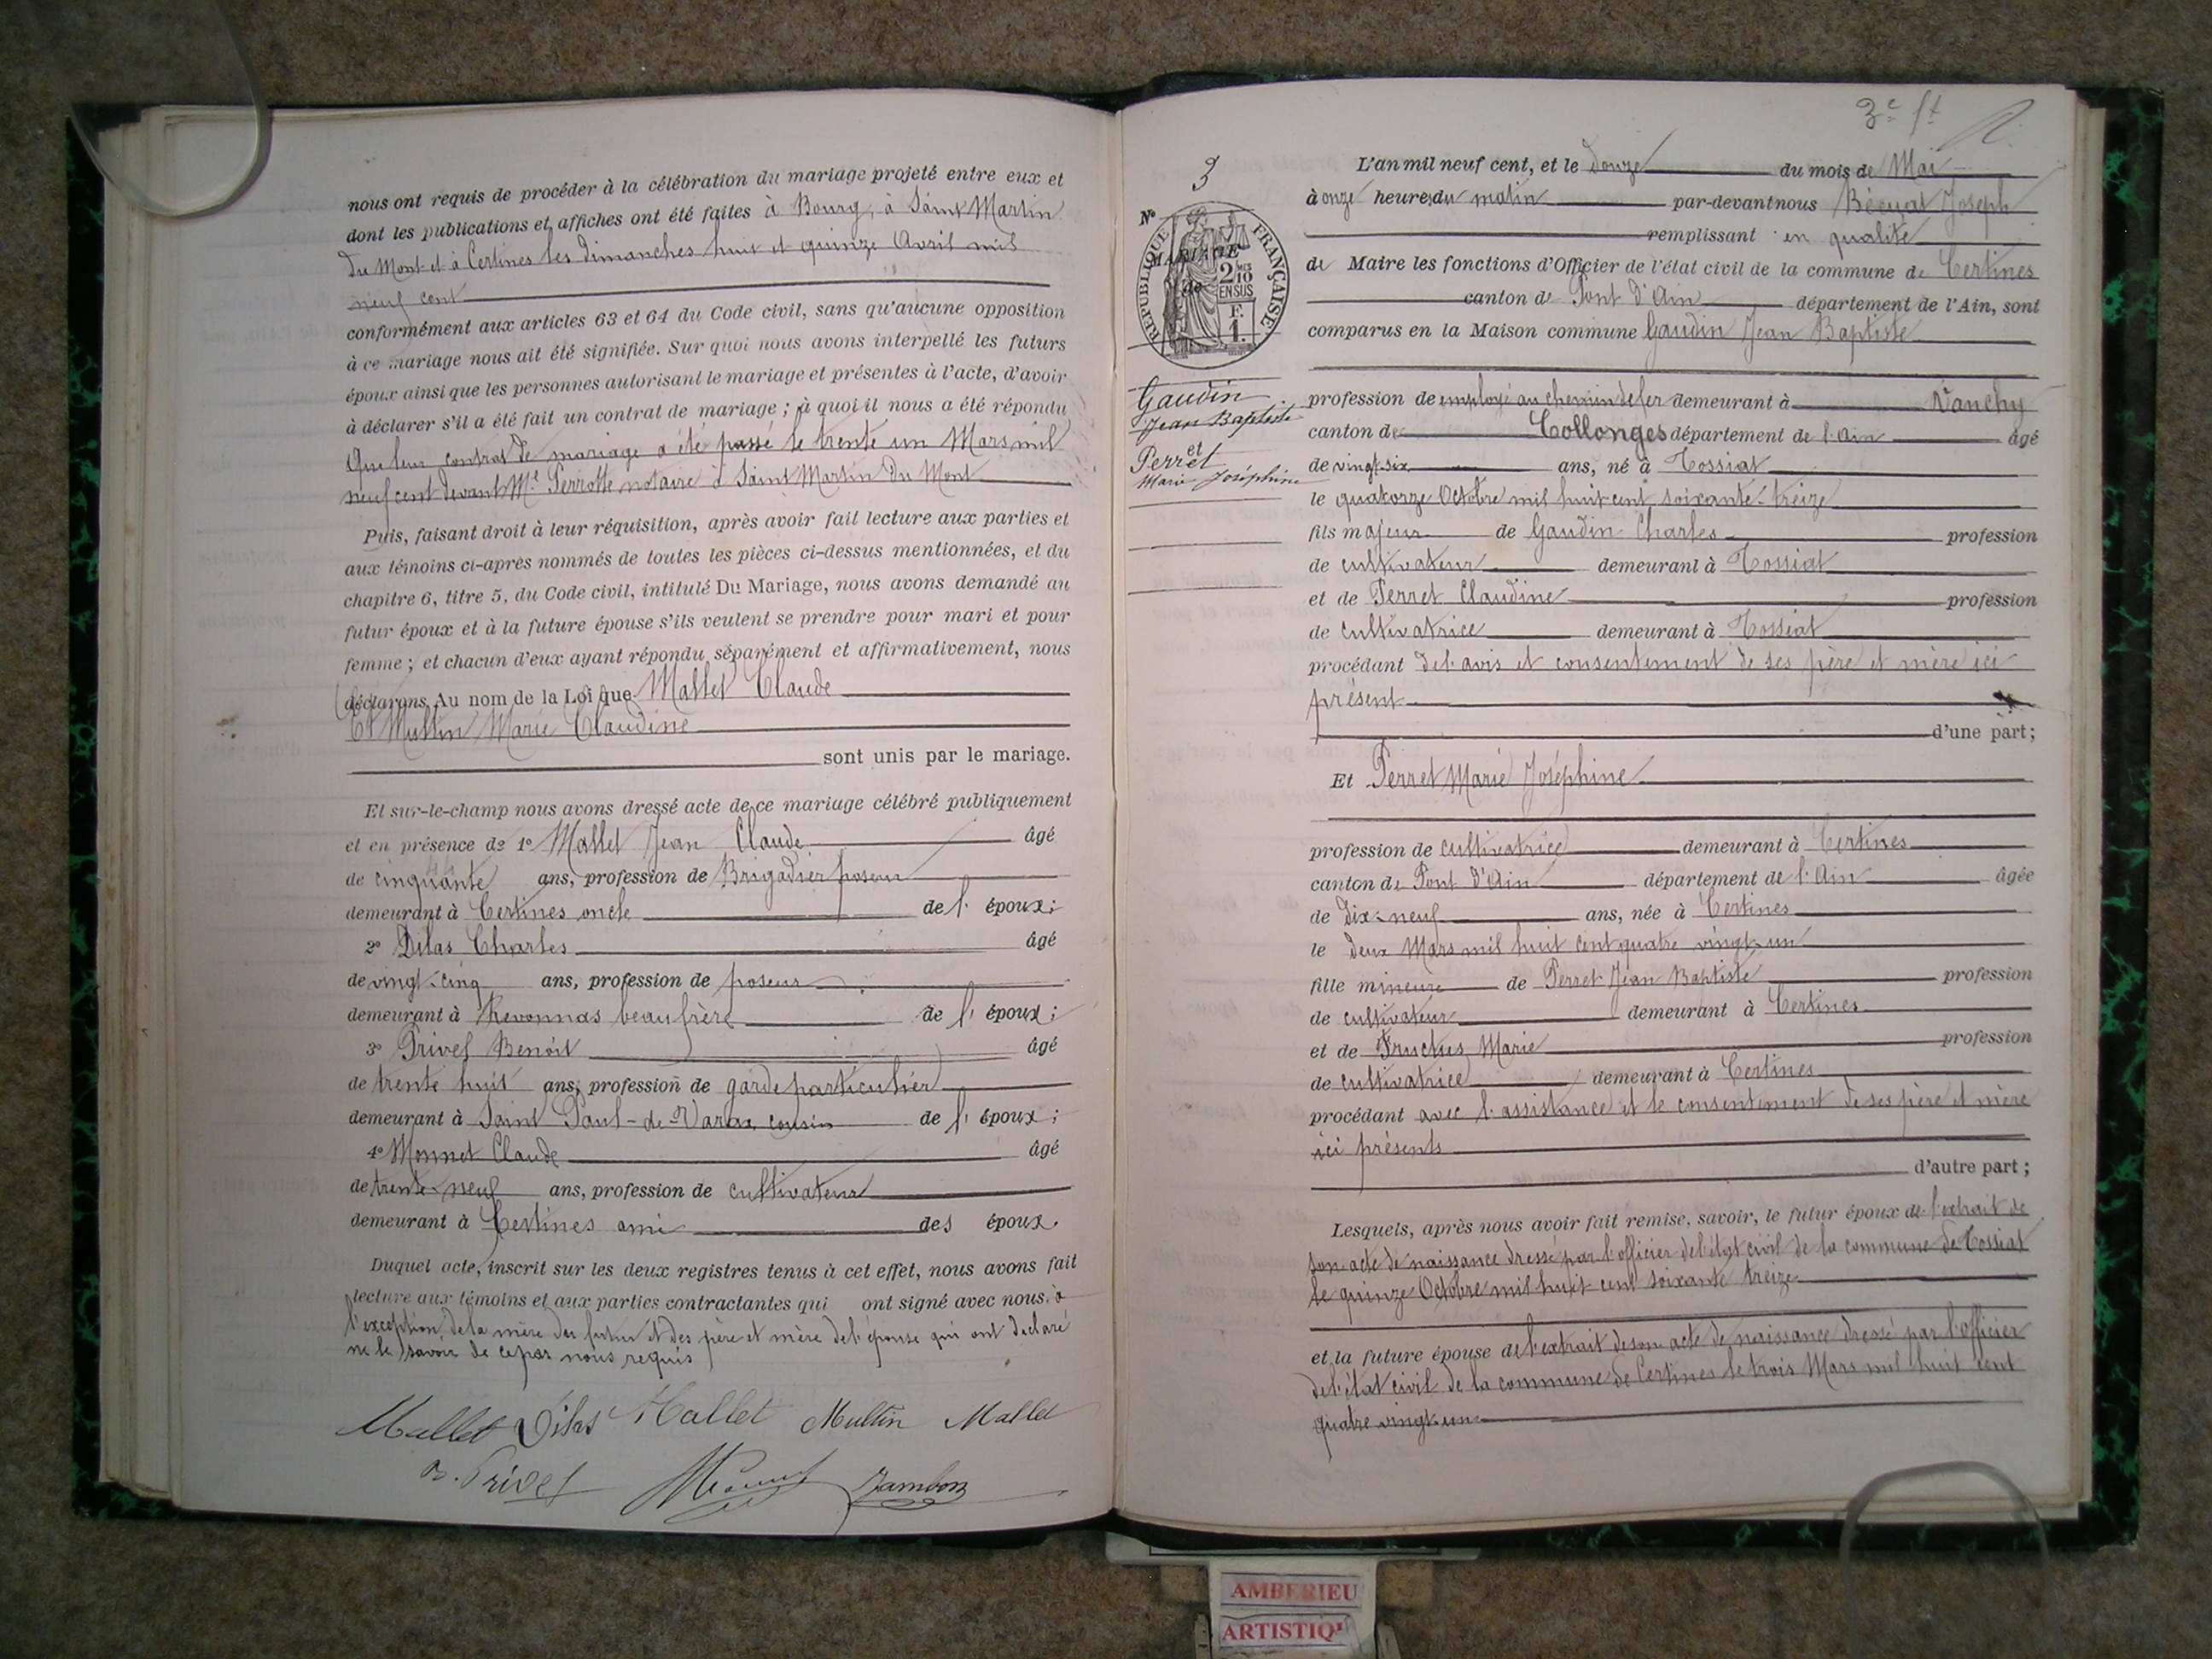 nous ont requis de procéder à la célébration du mariage projeté entre eux et
dont les publications et affiches ont été faites à Bourg, à Saint Martin
du Mont et à Certines les dimanches huit et quinze Avril mil
neuf cent
conformément aux articles 63 et 64 du Code civil, sans qu'aucune opposition
à ce mariage nous ait été signifiée. Sur quoi nous avons interpellé les futurs
époux ainsi que les personnes autorisant le mariage et présentes à l'acte, d'avoir
à déclarer s'il a été fait un contrat de mariage ; à quoi il nous a été répondu
Que leur contrat de mariage a été passé le trente un Mars mil
neuf cent devant Me Perrotte notaire à Saint Martin du Mont
Puis, faisant droit à leur réquisition, après avoir fait lecture aux parties et
aux témoins ci-après nommés de toutes les pièces ci-dessus mentionnées, et du
chapitre 6, titre 5, du Code civil, intitulé Du Mariage, nous avons demandé au
futur époux et à la future épouse s'ils veulent se prendre pour mari et pour
femme ; et chacun d'eux ayant répondu séparément et affirmativement, nous
déclarons Au nom de la Loi que Mallet Claude
Et Multin Marie Claudine
sont unis par le mariage.
Et sur-le-champ nous avons dressé acte de ce mariage célébré publiquement
et en présence de 1° Mallet Jean Claude âgé
de cinquante ans, profession de Brigadier poseur
demeurant à Certines oncle de l' époux ;
2° Dilas Charles âgé
de vingt-cinq ans, profession de poseur
demeurant à Revonnas beau frère de l' époux ;
3° Privel Benoit âgé
de trente huit ans, profession de garde particulier
demeurant à Saint Paul-de-Varax cousin de l' époux ;
4° Monnet Claude âgé
de trente-neuf ans, profession de cultivateur
demeurant à Certines ami des époux.
Duquel acte, inscrit sur les deux registres tenus à cet effet, nous avons fait
lecture aux témoins et aux parties contractantes qui ont signé avec nous. à
l'exception de la mère du futur et des père et mère de l'épouse qui ont déclaré
ne le savoir de ce par nous requis
Mallet Dilas Mallet Multin Mallet
B. Privel Jambon
3e ft
3
N°
RÉPUBLIQUE FRANÇAISE
MARIAGE
de
2 MES 10
EN SUS
F.
1.
Gaudin
Jean Baptiste
et
Perret
Marie Joséphine
L'an mil neuf cent, et le douze du mois de Mai
à onze heures du matin par-devant nous Joseph
remplissant en qualité
de Maire les fonctions d'Officier de l'état civil de la commune de Certines
canton de Pont d'Ain département de l'Ain, sont
comparus en la Maison commune Gaudin Jean Baptiste
profession de employé au chemin de fer demeurant à Vanchy
canton de Collonges département de l'Ain âgé
de vingt-six ans, né à Tossiat
le quatorze Octobre mil huit cent soixante-treize
fils majeur de Gaudin Charles profession
de cultivateur demeurant à Tossiat
et de Perret Claudine profession
de cultivatrice demeurant à Tossiat
procédant de l'avis et consentement de ses père et mère ici
présent
d'une part ;
Et Perret Marie Joséphine
profession de cultivatrice demeurant à Certines
canton de Pont d'Ain département de l'Ain âgée
de dix-neuf ans, née à Certines
le deux Mars mil huit cent quatre vingt-un
fille mineure de Perret Jean Baptiste profession
de cultivateur demeurant à Certines
et de Fruchus Marie profession
de cultivatrice demeurant à Certines
procédant avec l'assistance et le consentement de ses père et mère
ici présents
d'autre part ;
Lesquels, après nous avoir fait remise, savoir, le futur époux de l'extrait de
son acte de naissance dressé par l'officier de l'état civil de la commune de Tossiat
le quinze Octobre mil huit cent soixante treize
et la future épouse de l'extrait de son acte de naissance dressé par l'officier
de l'état civil de la commune de Certines le trois Mars mil huit cent
quatre vingt-un
AMBERIEU
ARTISTIQ